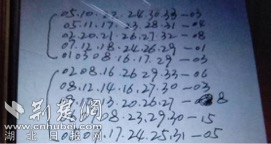 05.10.22.24.30.33—03
05.11.17.23.28.31—08
02.20.21.26.27.32—08
07.12.18.24.26.29—01
01.03.08.16.17.29—03
02.08.16.26.29.33—06
08.12.14.16.27.30—03
13.20.26.27
08.23.29.30—15
17.24.25.31—05
荆楚网
湖北日报网